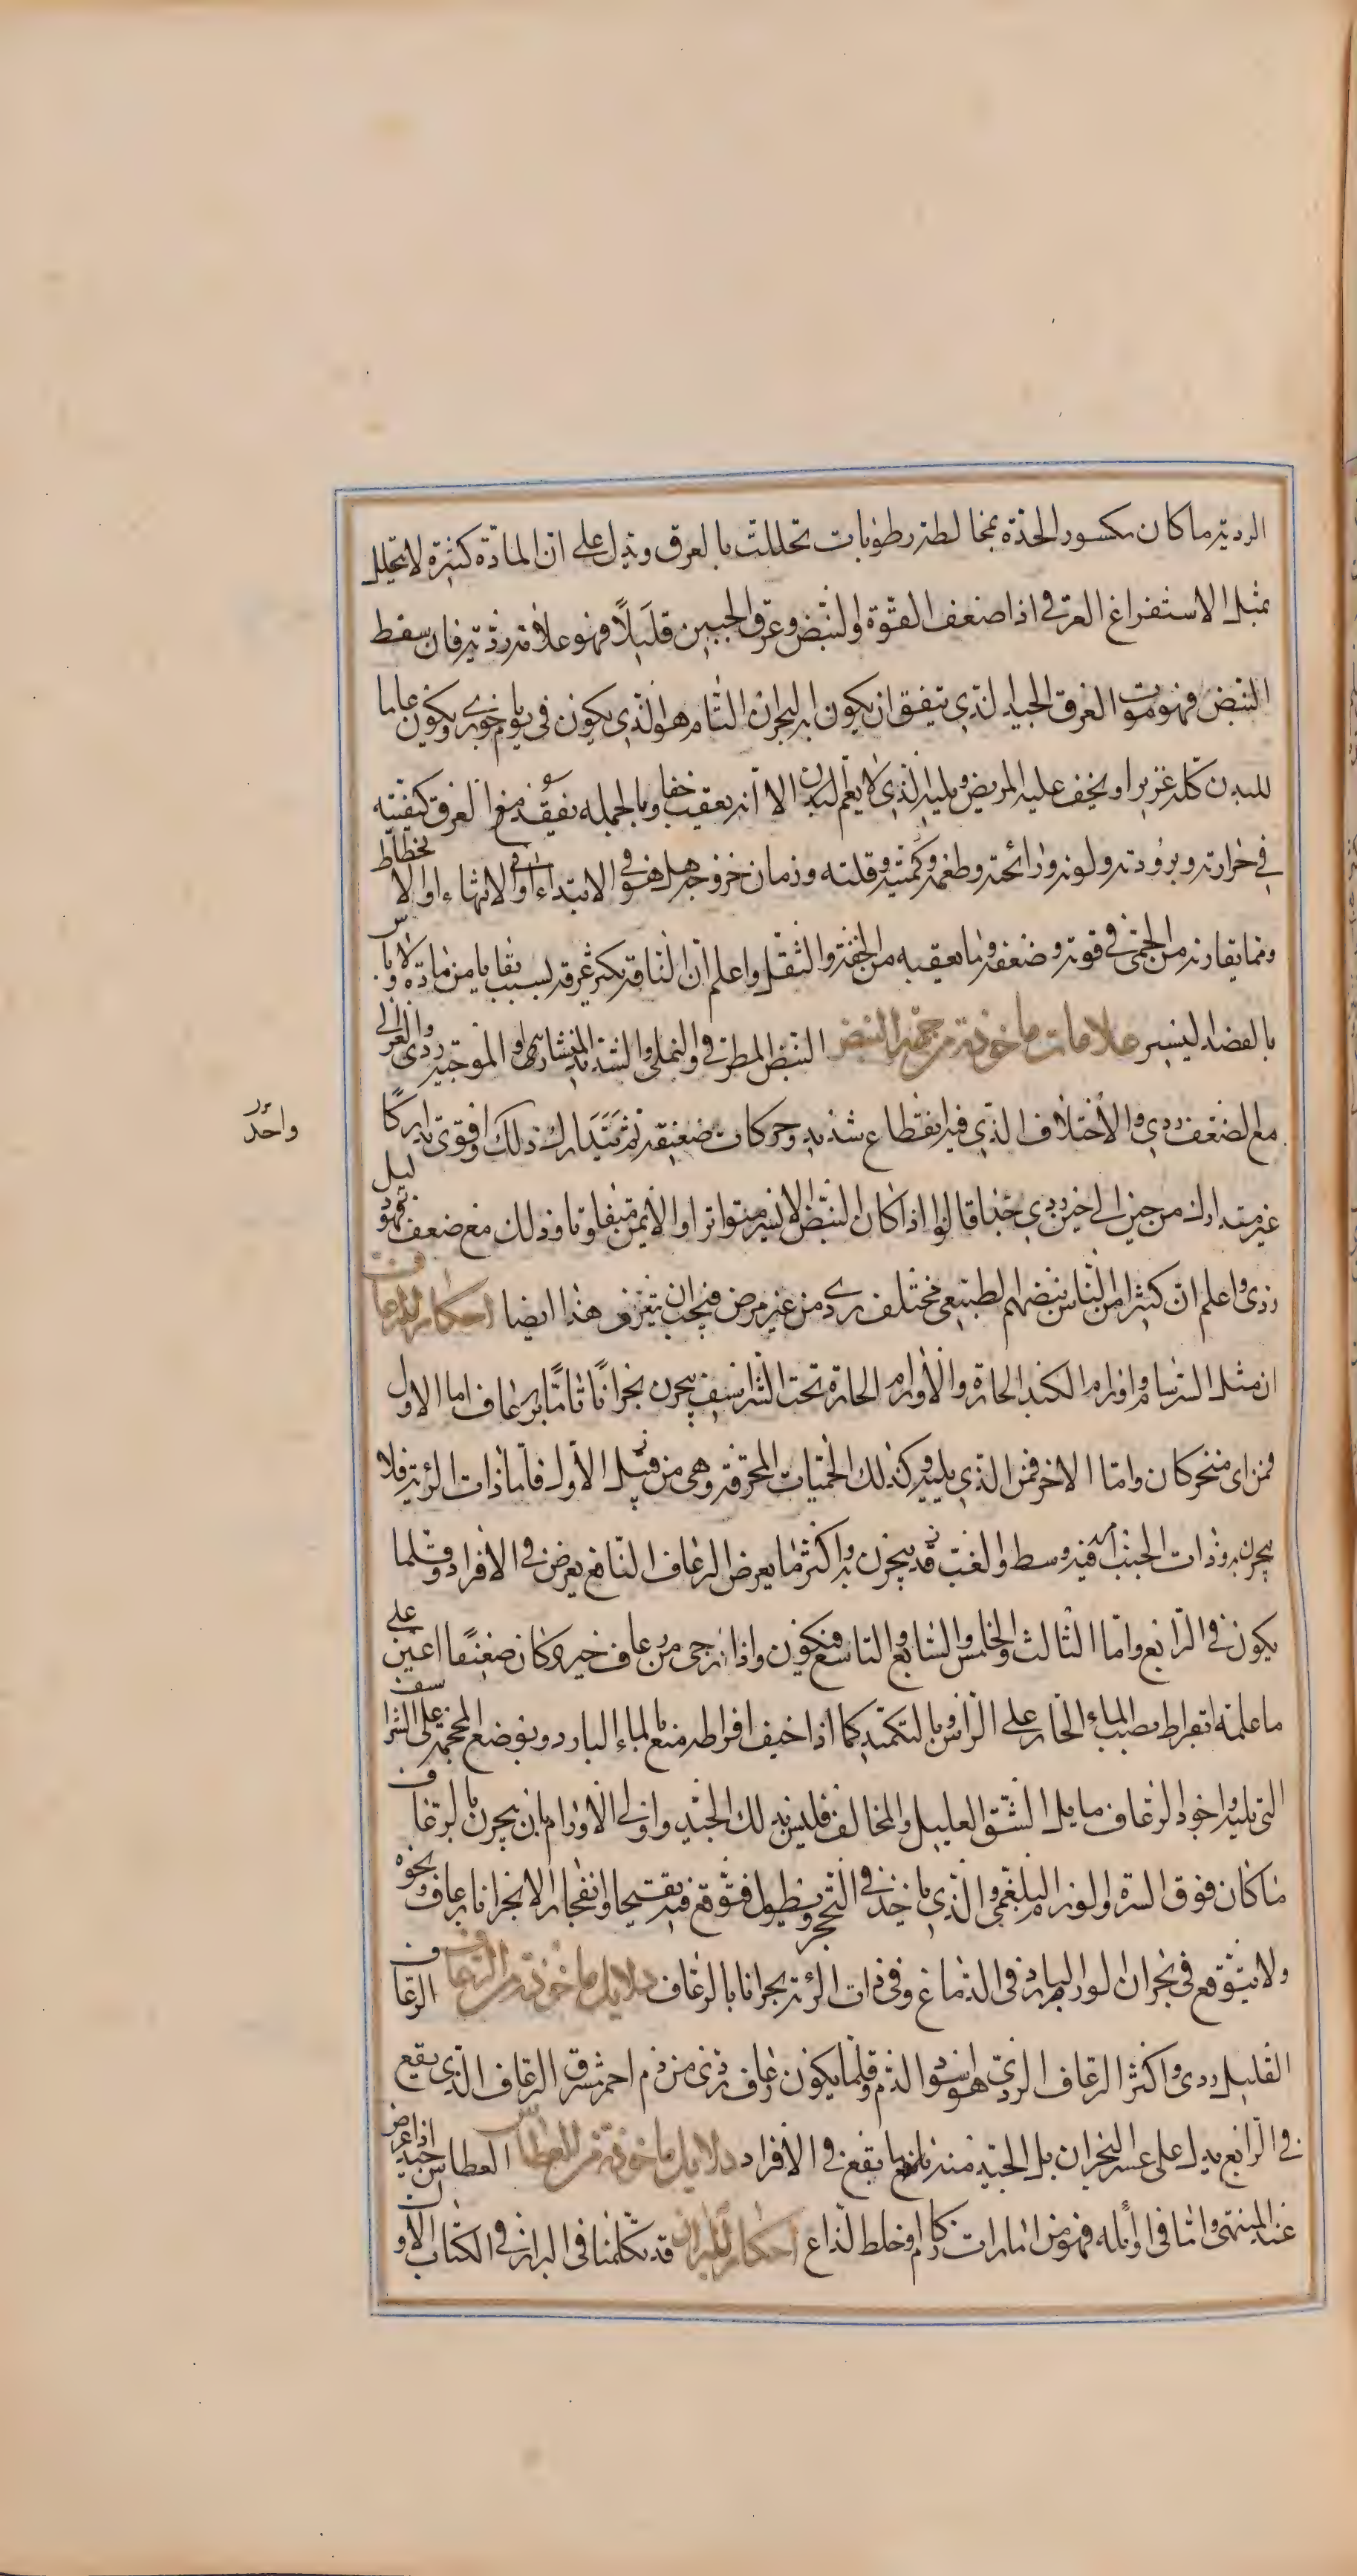 الرديه ما كان مكسور الحدة بمخالطة رطوبات تحللت بالعرق ويدل على ان المادة كثيرة لا تتحلل
بمثل الاستفراغ العرقي اذا ضعف القوة والنبض وعرق الجبين قليلاً فهو علامة رديّة فان سقط
النبض فهو موت العرق الجيد الذي يتفق ان يكون به البحران التام هو الذي يكون في يوم باحوري ويكون عاما
للبدن كله غزيرا ويخف عليه المريض ويليه الذي لا يعم البدن الا انه يعقب خفا وبالجمله تفقد من العرق كيفيته
في حرارته وبرودته ولونه ورائحته وطعمه وكميته وقلته وزمان خروجه هل هو في الابتداء او في الانتهاء او الانحطاط
وما يقارنه من الحمى في قوته وضعفه وما يعقبه من الخفة والثقل واعلم ان الناقه يكثر عرقه بسبب بقايا من مادة ولا باس
بالفصد اليسير علامات ماخوذة من جهة النبض النبض المطرقي والنملي والشديد المنشارية والموجية ردي والغزالي
مع الضعف ردي والاختلاف الذي فيه انقطاع شديد وحركات ضعيفة ثم يتدارك ذلك اقوى تداركًا
واحد
غير متدارك من حين الى حين ردي جدا قالوا اذا كان النبض الايسر متواترا والايمن متفاوتا وذلك مع ضعف فهو دليل
ردى واعلم ان كثيرا من الناس نبضهم الطبيعي مختلف ردي من غير مرض فيجب ان يتعرف هذا ايضا احكام الرعاف
ان مثل السرسام واورام الكبد الحارة والاورام الحارة تحت الشراسيف يبحرن بحرانًا تامًا برعاف اما الاول
فمن اى منخر كان واما الاخر فمن الذي يليه وكذلك الحميات المحرقة وهي من قبيل الاول فاما ذات الرئة فلا
يبحرن به وذات الجنب امره فيه وسط والغب قد يبحرن به واكثر ما يعرض الرعاف النافع يعرض في الافراد وقلما
يكون في الرابع واما الثالث والخامس والسابع والتاسع فيكون واذا رجى من رعاف خير وكان ضعيفًا اعين على
ما علمنه ابقراط بصب الماء الحار على الراس وبالتكميد كما اذا خيف افراطه منع بالماء البارد وبوضع المحجمة على الشراسيف
التي تليه واجود الرعاف ما يلى الشق العليل والمخالف فليس بذلك الجيد واولى الاورام بان يبحرن بالرعاف
ما كان فوق السرة والورم البلغمي والذي ياخذ في التحجر ويطول فتوقع فيه تقيحا وانفجارا لا بحرانا برعاف ونحوه
ولا يتوقع في بحران الورم البارد في الدماغ وفي ذات الرئة بحرانا بالرعاف دلايل ماخوذة من الرعاف الرعاف
القليل ردى واكثر الرعاف الردي هو اسود الدم وقلما يكون رعاف ردى من دم احمر مشرق الرعاف الذي يقع
في الرابع يدل على عسر البحران بل الجيد منه ما يقع في الافراد دلايل ماخوذة من العطاس العطاس جيد اذا عرض
عند المنتهى واما في اوايله فهو من امارات زكام او خلط لذاع احكام البراز قد تكلمنا في البراز في الكتاب الاو